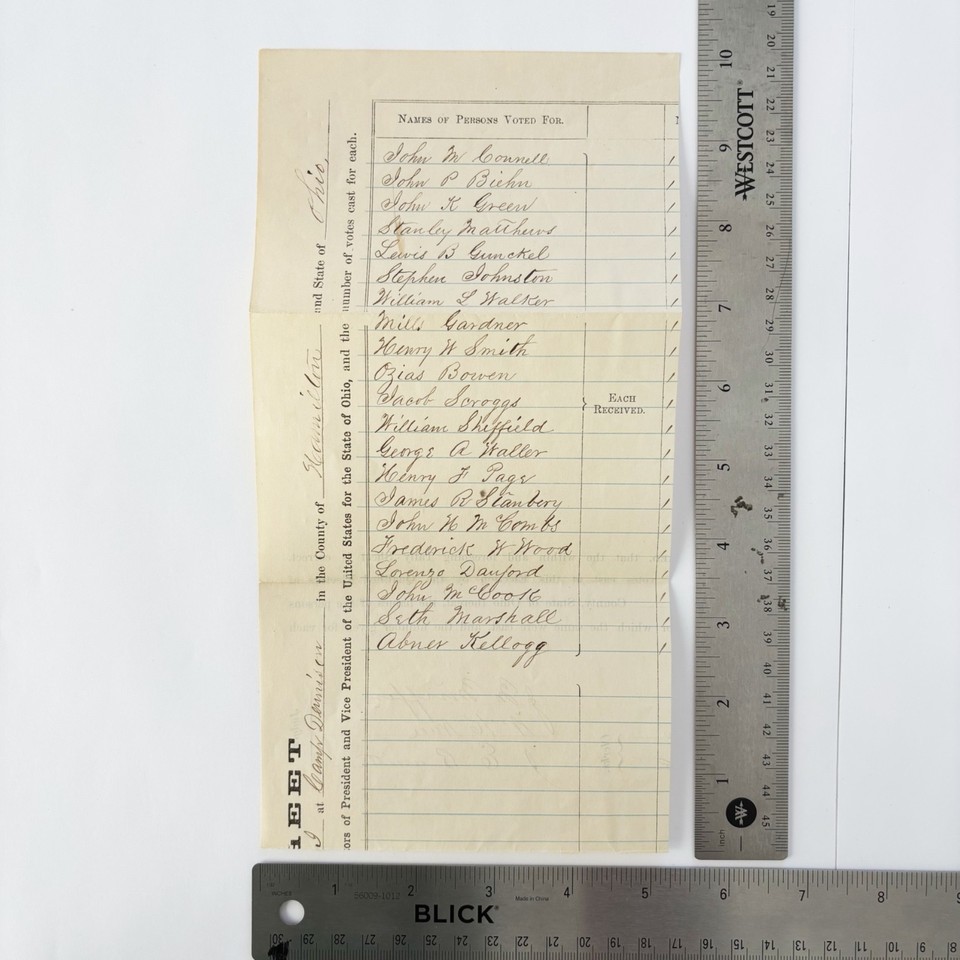 NAMES OF PERSONS VOTED FOR.
John M Connell
John P Biehn
John K Green
Stanley Matthews
Lewis B Gunckel
Stephen Johnston
William L Walker
Mills Gardner
Henry W Smith
Ozias Bowen
Jacob Scroggs
William Sheffield
George A Waller
Henry F Page
James R Stanbery
John H McCombs
Frederick W Wood
Lorenzo Danford
John McCook
Seth Marshall
Abner Kellogg
EACH
RECEIVED.
EET
at Camp Dennison in the County of Hamilton and State of Ohio,
ors of President and Vice President of the United States for the State of Ohio, and the number of votes cast for each.
WESTCOTT
10
9
8
7
6
5
4
3
2
1
Inch
19
20
21
22
23
24
25
26
27
28
29
30
31
32
33
34
35
36
37
38
39
40
41
42
43
44
45
INCHES
1 2 3 4 5 6 7 8 9
96009-1012
Made in China
BLICK
30 29 28 27 26 25 24 23 22 21 20 19 18 17 16 15 14 13 12 11 10 9 8